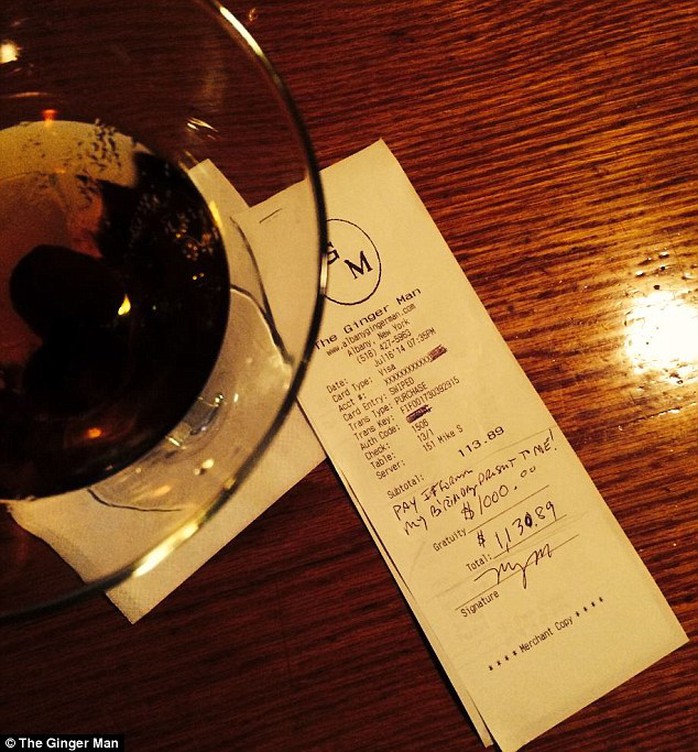 G M
The Ginger Man
www.albanygingerman.com
Albany, New York
(518) 427-5963
Date: Jul16'14 07:35PM
Card Type: Visa
Acct #: XXXXXXXXXXXX
Card Entry: SWIPED
Trans Type: PURCHASE
Trans Key:
Auth Code:
Check: 1506
Table: 13/1
Server: 151 Mike S
Subtotal: 113.89
PAY IT FORWARD
MY BIRTHDAY PRESENT TO ME!
Gratuity $1000.00
Total: $1,130.89
Signature
**** Merchant Copy ****
© The Ginger Man